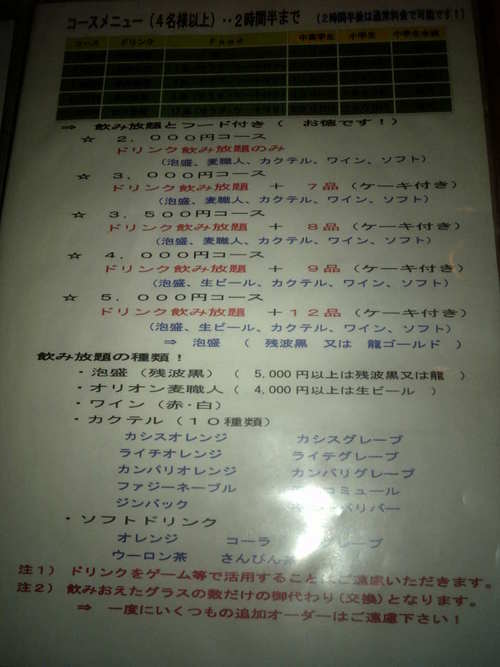 コースメニュー(4名様以上)‥2時間半まで (2時間半後は通常料金で可能です!)
コース ドリンク Food 中高学生 小学生 小学生未満
⇒ 飲み放題とフード付き( お徳です!)
☆ 2.000円コース
ドリンク飲み放題のみ
(泡盛、麦職人、カクテル、ワイン、ソフト)
☆ 3.000円コース
ドリンク飲み放題 + 7品(ケーキ付き)
(泡盛、麦職人、カクテル、ワイン、ソフト)
☆ 3.500円コース
ドリンク飲み放題 + 8品(ケーキ付き)
(泡盛、麦職人、カクテル、ワイン、ソフト)
☆ 4.000円コース
ドリンク飲み放題 + 9品(ケーキ付き)
(泡盛、生ビール、カクテル、ワイン、ソフト)
☆ 5.000円コース
ドリンク飲み放題 +12品(ケーキ付き)
(泡盛、生ビール、カクテル、ワイン、ソフト)
⇒ 泡盛 ( 残波黒 又は 龍ゴールド )
飲み放題の種類!
・泡盛(残波黒)( 5,000円以上は残波黒又は龍 )
・オリオン麦職人( 4,000円以上は生ビール )
・ワイン(赤・白)
・カクテル(10種類)
カシスオレンジ カシスグレープ
ライチオレンジ ライチグレープ
カンパリオレンジ カンパリグレープ
ファジーネーブル コミュール
ジンバック バリバー
・ソフトドリンク
オレンジ コーラ レープ
ウーロン茶 さんぴん茶
注1) ドリンクをゲーム等で活用することはご遠慮いただきます。
注2) 飲みおえたグラスの数だけの御代わり(交換)となります。
⇒ 一度にいくつもの追加オーダーはご遠慮下さい!